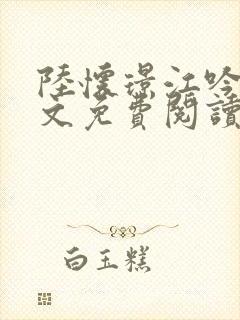 陸懷璟江吟
文免費閱讀
白玉糕